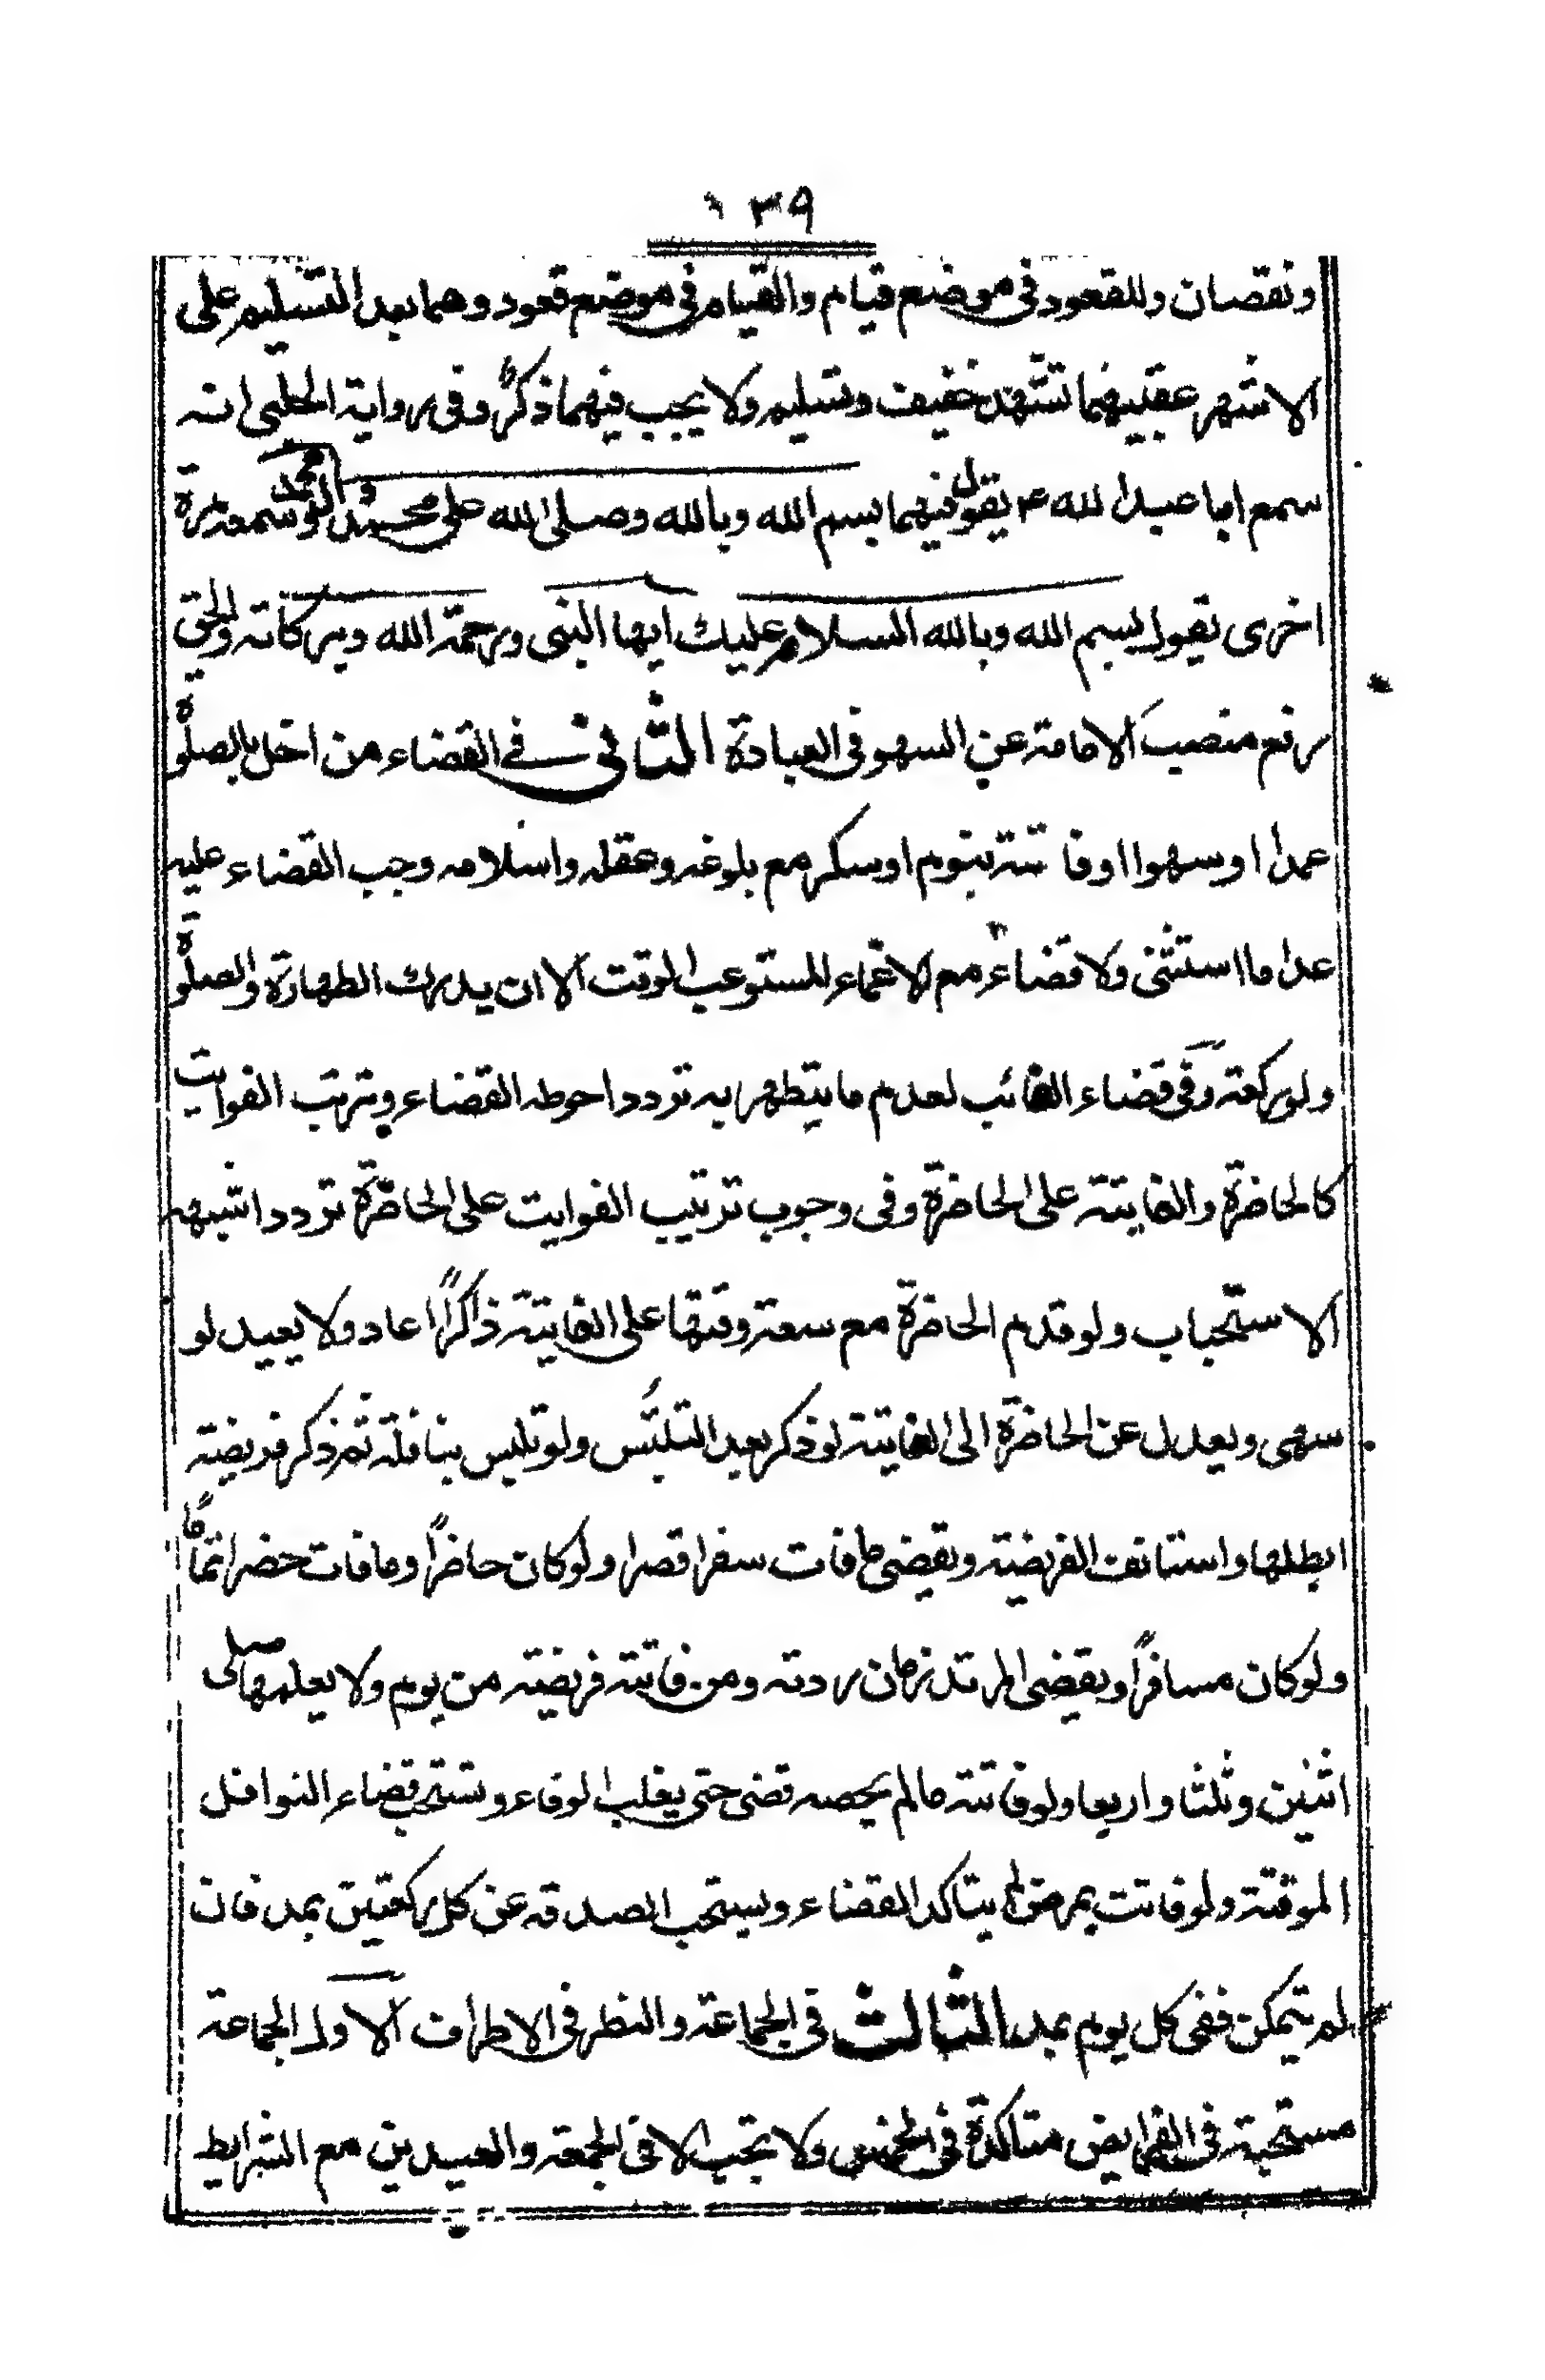 ١٣٩
ونقصان وللقعود فى موضع قيام والقيام فى موضع قعود وهما بعد التسليم على
الاشهر عقيبهما تشهد خفيف وتسليم ولا يجب فيهما ذكرٌ وفى رواية الحلبى انه
سمع ابا عبد الله ع يقول فيهما بسم الله وبالله وصلى الله على محمد وال محمد وسمعه مرة
اخرى يقول بسم الله وبالله السلام عليك ايها النبى ورحمة الله وبركاته والحق
رفع منصب الامامة عن السهو فى العبادة الثانى فى القضاء من اخل بالصلوة
عمدا او سهوا او فاتته بنوم او سكر مع بلوغه وعقله واسلامه وجب القضاء عليه
عدا ما استثنى ولا قضاء مع الاغماء المستوعب الوقت الا ان يدرك الطهارة والصلوة
ولو بركعة وفى قضاء الفائت لعدم ما يتطهر به تردد احوطه القضاء وترتب الفوايت
كالحاضرة والفايتة على الحاضرة وفى وجوب ترتيب الفوايت على الحاضرة تردد اشبهه
الاستحباب ولو قدم الحاضرة مع سعة وقتها على الفايتة ذاكرًا اعاد ولا يعيد لو
سهى ويعدل عن الحاضرة الى الفايتة لو ذكر بعد التلبّس ولو تلبس بنافلة ثم ذكر فريضة
ابطلها واستانف الفريضة ويقضى ما فات سفرا قصرا ولو كان حاضرًا وما فات حضرا تمامًا
ولو كان مسافرًا ويقضى المرتد زمان ردته ومن فاتته فريضة من يوم ولا يعلمها صلى
اثنين وثلثا واربعا ولو فاتته ما لم يحصه قضى حتى يغلب الوفاء ويستحب قضاء النوافل
الموقتة ولو فاتت بمرض لم يتاكد القضاء ويستحب الصدقة عن كل ركعتين بمد فان
لم يتمكن ففى كل يوم بمد الثالث فى الجماعة والنظر فى الاطراف الاول الجماعة
مستحبة فى الفرايض متاكدة فى الخمس ولا تجب الا فى الجمعة والعيدين مع الشرايط